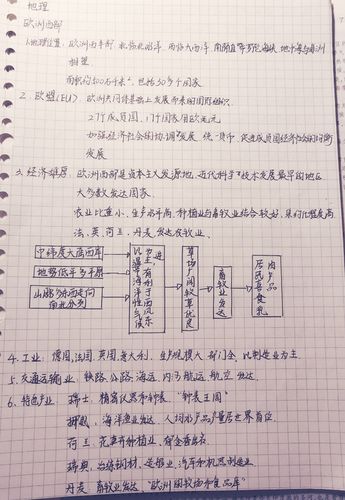 地理
欧洲西部
1.地理位置：欧洲西半部 北临北冰洋 西临大西洋 南隔直布罗陀海峡、地中海与非洲
相望
面积约500万千米²，包括30多个国家
2. 欧盟(EU)：欧洲共同体基础上发展而来的国际组织
27个成员国，17个国家用欧元
加强经济社会的协调发展 统一货币 促进成员国经济社会的均衡
发展
3. 经济发展：欧洲西部是资本主义发源地，近代科学技术发展最早的地区
大多数发达国家
农业比重小，生产水平高 种植业与畜牧业结合较好，集约化程度高
法、英、荷兰、丹麦 发达农牧业。
中纬度大陆西岸
地势低平多平原
山脉多东西走向
南北分列
以温带海洋性气候
为主，有利于西风
草场广阔
牧草优良
畜牧业发达
居民喜食乳
肉产品
4. 工业：德国，法国，英国，意大利。生产规模大 部门全，以制造业为主
5. 交通运输业：铁路、公路、海运、内河航运、航空 发达
6. 特色产业 瑞士，精密仪器和钟表 "钟表王国"
挪威，海洋渔业发达 人均水产品产量居世界首位
荷兰，花卉种植业，郁金香出名
瑞典，冶炼钢材，造船业，汽车和机器制造业
丹麦 畜牧业发达 "欧洲的食品库"